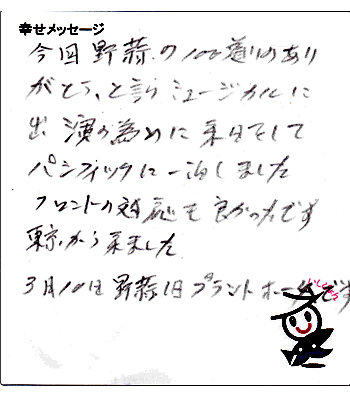 幸せメッセージ
今回野蒜の100通りのあり
がとう、と言うミュージカルに
出演の為めに来日をして
パシフィックに一泊しました
フロントの対応も良かったです
東京から来ました
3月10日野蒜1日プラントホールです